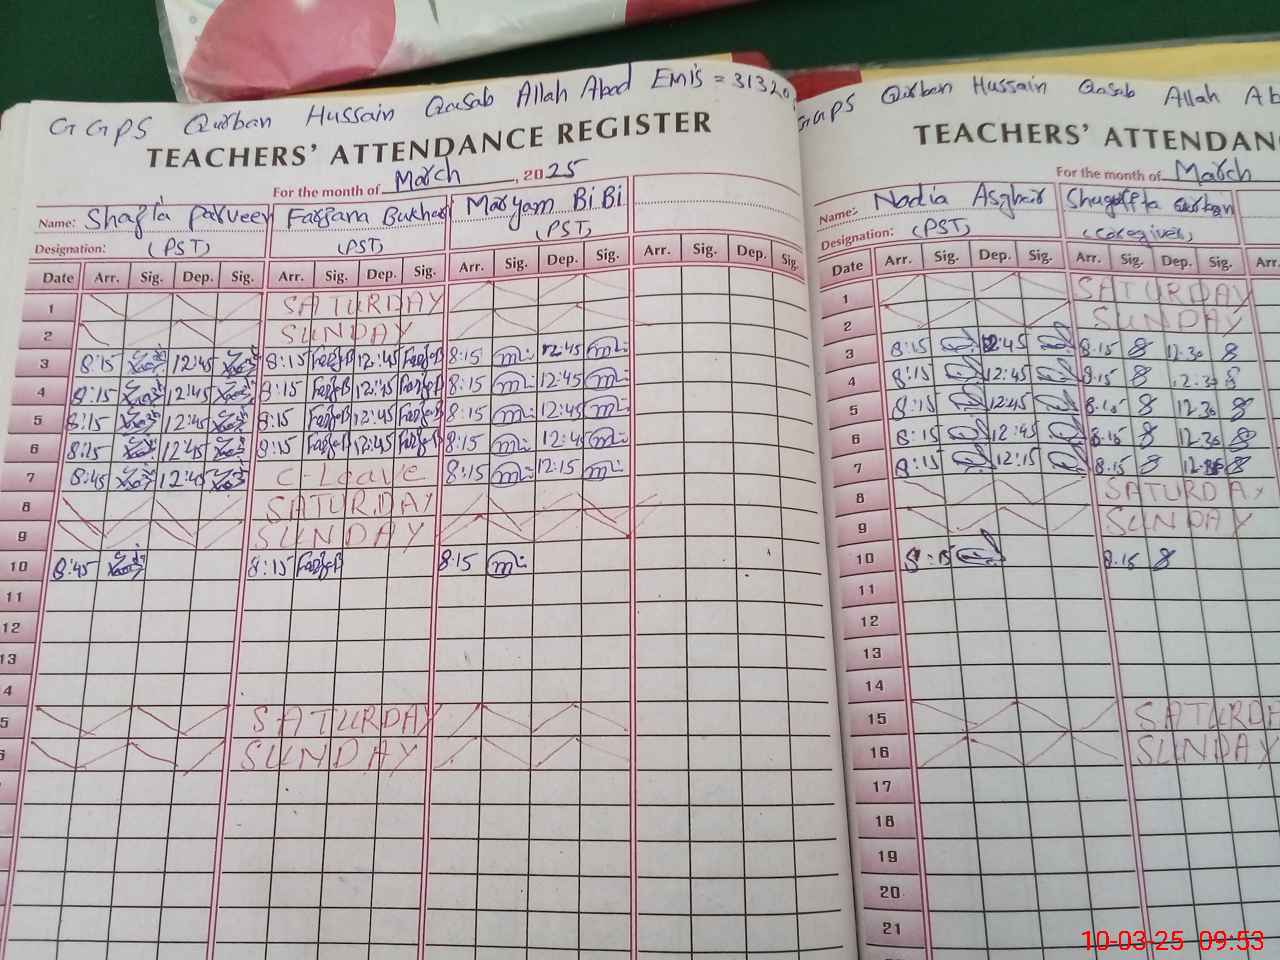 GGPS Qurban Hussain Qasab Allah Abad EMIS = 31320
TEACHERS' ATTENDANCE REGISTER
For the month of March, 2025
Name: Shazia Parveen Farzana Bukhari Maryam BiBi
Designation: (PST) (PST) (PST)
Date Arr. Sig. Dep. Sig. Arr. Sig. Dep. Sig. Arr. Sig. Dep. Sig. Arr. Sig. Dep. Sig.
1 SATURDAY
2 SUNDAY
3 8:15 12:45 8:15 12:45 8:15 12:45
4 8:15 12:45 8:15 12:45 8:15 12:45
5 8:15 12:45 8:15 12:45 8:15 12:45
6 8:15 12:45 8:15 12:45 8:15 12:4
7 8:45 12:45 C-Leave 8:15 12:15
8 SATURDAY
9 SUNDAY
10 8:45 8:15 8:15
11
12
13
4
5 SATURDAY
6 SUNDAY
GGPS Qurban Hussain Qasab Allah Ab
TEACHERS' ATTENDAN
For the month of March
Name: Nadia Asghar Shagufta Qurban
Designation: (PST) (Caregiver)
Date Arr. Sig. Dep. Sig. Arr. Sig. Dep. Sig. Arr.
1 SATURDAY
2 SUNDAY
3 8:15 12:45 8.15 12.30
4 8:15 12:45 8.15 12.30
5 8:15 12:45 8.15 12.30
6 8:15 12:45 8.15 12.30
7 8:15 12:15 8.15
8 SATURDAY
9 SUNDAY
10 8:15 8.15
11
12
13
14
15 SATURDA
16 SUNDAY
17
18
19
20
21
10-03-25 09:53